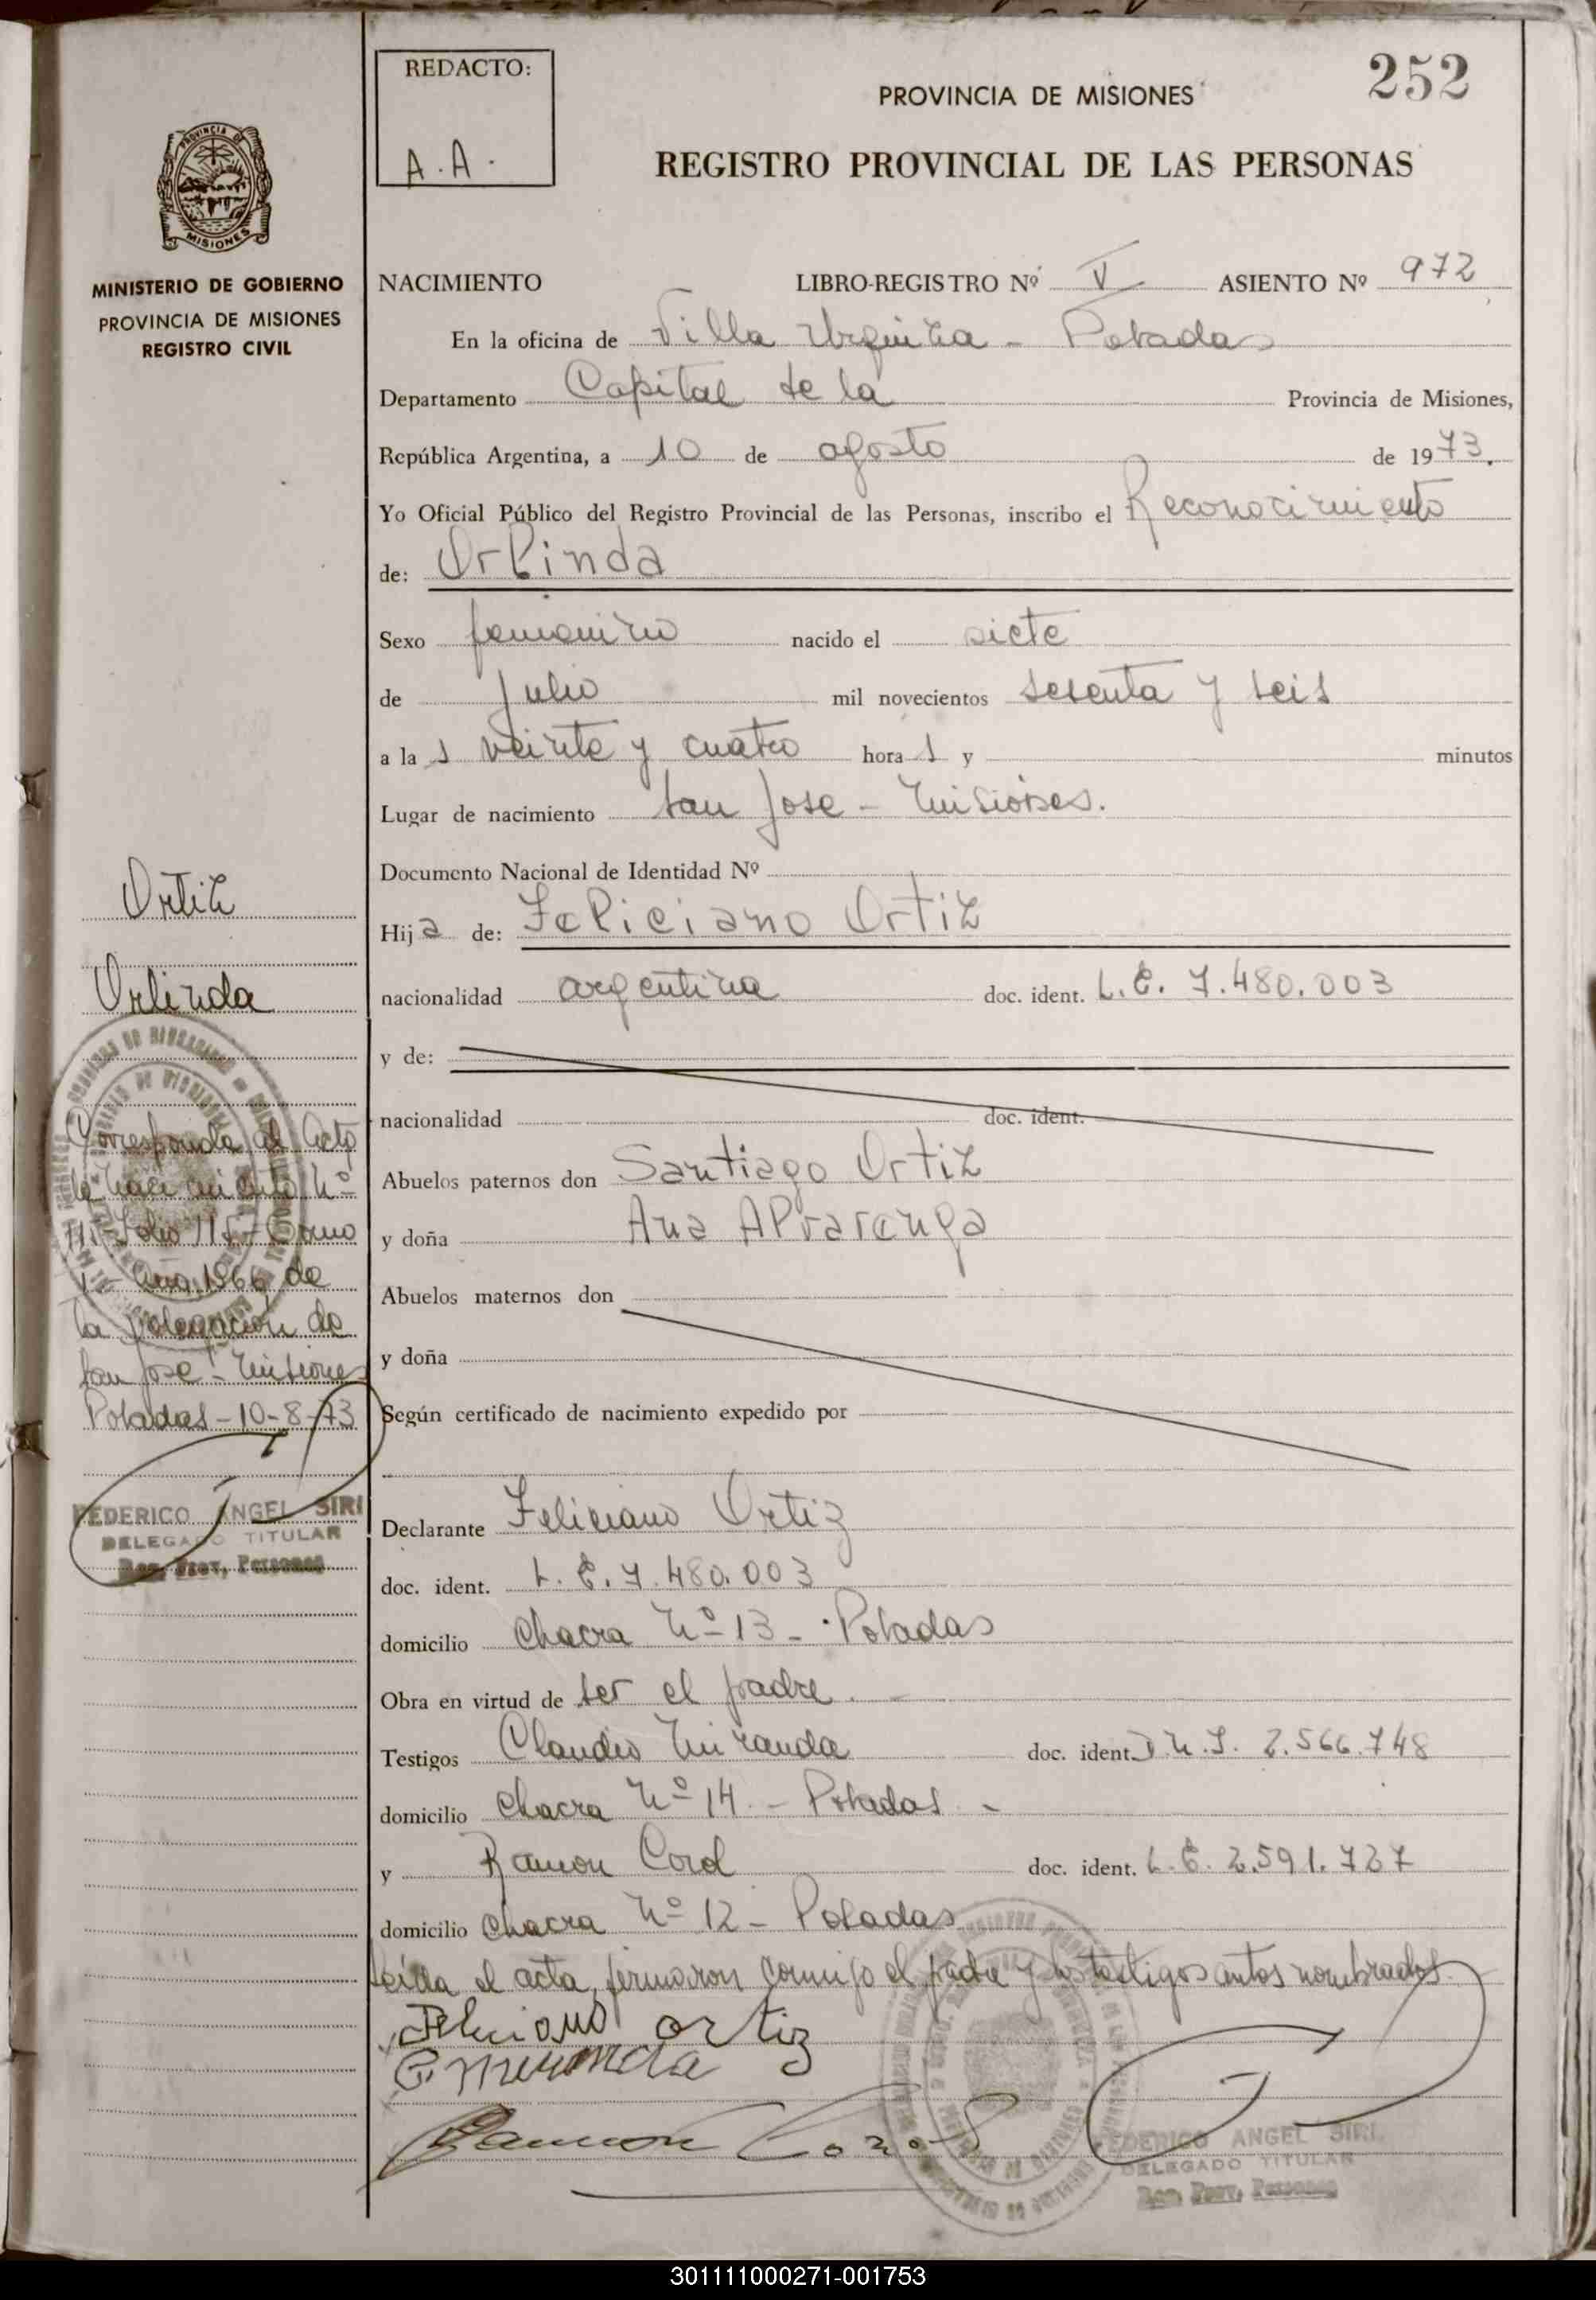 252
REDACTO:
A.A.
PROVINCIA DE MISIONES
REGISTRO PROVINCIAL DE LAS PERSONAS
PROVINCIA DE
MISIONES
MINISTERIO DE GOBIERNO
PROVINCIA DE MISIONES
REGISTRO CIVIL
NACIMIENTO LIBRO-REGISTRO Nº V ASIENTO Nº 972
En la oficina de Villa Urquiza - Posadas
Departamento Capital de la Provincia de Misiones,
República Argentina, a 10 de agosto de 1973.
Yo Oficial Público del Registro Provincial de las Personas, inscribo el Reconocimiento
de: Orlinda
Sexo femenino nacido el siete
de Julio mil novecientos sesenta y seis
a la s veinte y cuatro hora s y minutos
Lugar de nacimiento San Jose - Misiones.
Documento Nacional de Identidad Nº
Hija de: Feliciano Ortiz
nacionalidad argentina doc. ident. L.E. 7.480.003
y de:
nacionalidad doc. ident.
Abuelos paternos don Santiago Ortiz
y doña Ana Alvarenga
Abuelos maternos don
y doña
Según certificado de nacimiento expedido por
Declarante Feliciano Ortiz
doc. ident. L.E. 7.480.003
domicilio Chacra Nº 13 - Posadas
Obra en virtud de ser el padre.
Testigos Claudio Miranda doc. ident. D.N.I. 2.566.748
domicilio Chacra Nº 14 - Posadas -
y Ramon Corol doc. ident. L.E. 2.591.727
domicilio Chacra Nº 12 - Posadas
Leida el acta, firmaron conmigo el padre y los testigos antes nombrados.
Feliciano ortiz
C Miranda
Ramon
FEDERICO ANGEL SIRI
DELEGADO TITULAR
Reg. Prov. Personas
Ortiz
Orlinda
Corresponde al Acta
de nacimiento Nº
115 - Folio 115 - Tomo
1 - Año 1966 de
la Delegación de
San Jose - Misiones
Posadas - 10-8-73
FEDERICO ANGEL SIRI
DELEGADO TITULAR
Reg. Prov. Personas
301111000271-001753